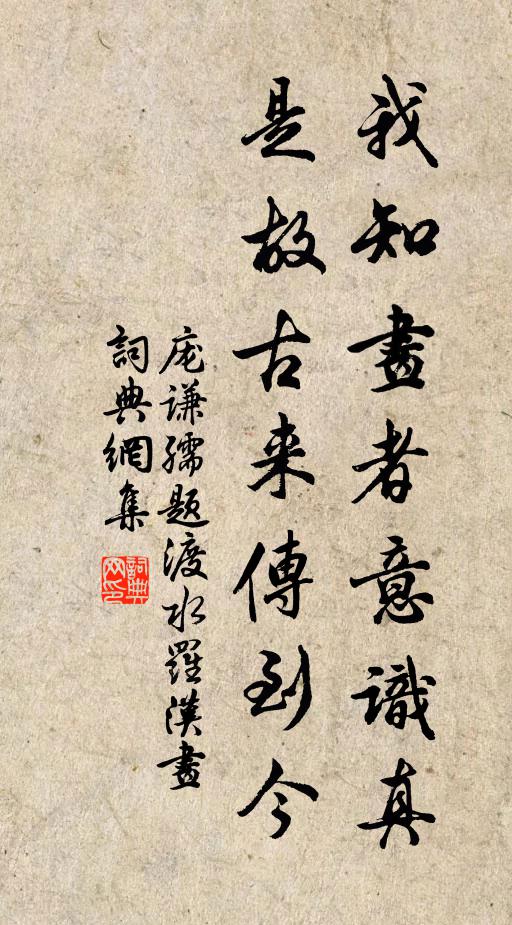 我知畫者意識真
是故古来傳到今
庞谦孺题渡水羅漢畫
詞典網集
詞典網印